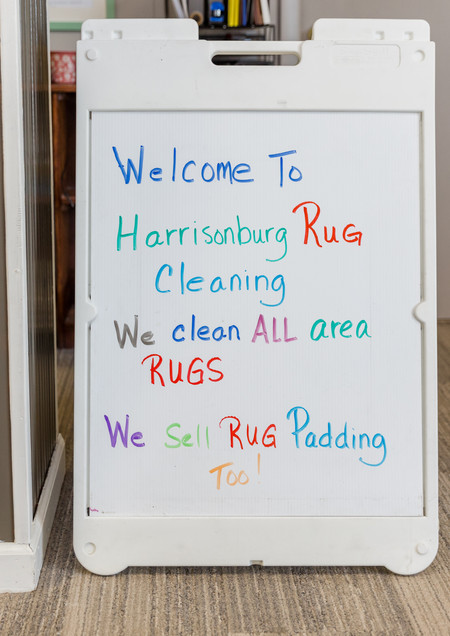 Welcome To
Harrisonburg RUG
Cleaning
We clean ALL area
RUGS
We Sell RUG Padding
Too!